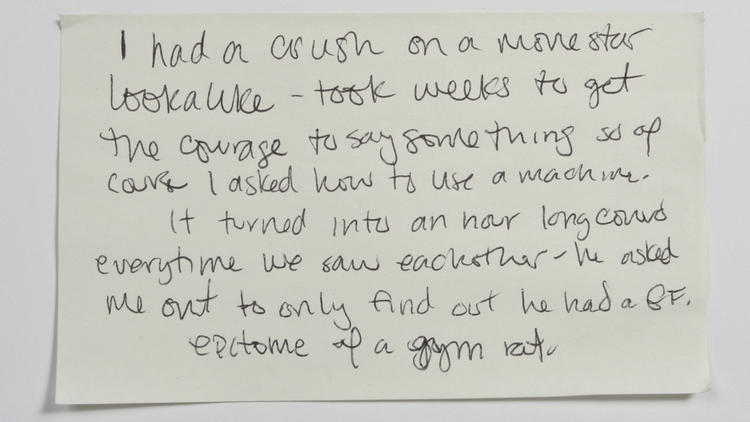 I had a crush on a movie star
lookalike - took weeks to get
the courage to say something so of
course I asked how to use a machine.
It turned into an hour long convo
everytime we saw eachother - he asked
me out to only find out he had a GF.
epitome of a gym rat.